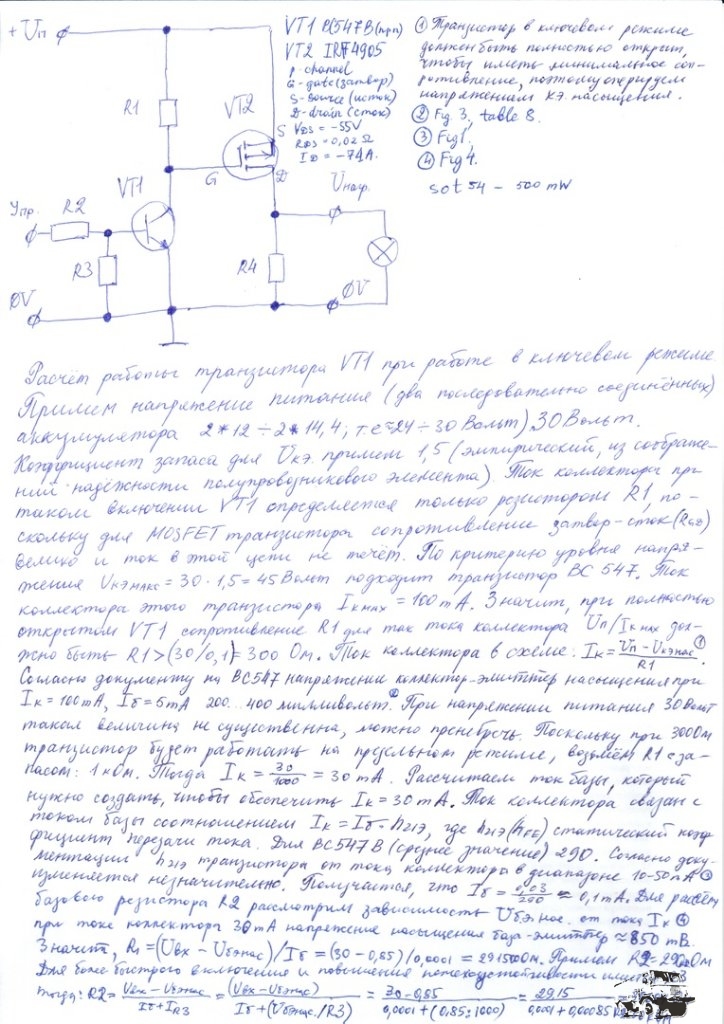 +Uп
R1
VT2
S
G
D
VT1
Uпр.
R2
R3
R4
0V
Uнагр.
0V
VT1 BC547B (npn)
VT2 IRF4905
p-channel
G-gate (затвор)
S-source (исток)
D-drain (сток)
VDS = -55V
RDS = 0,02 Ω
ID = -74A.
① Транзистор в ключевом режиме
должен быть полностью открыт,
чтобы иметь минимальное соп-
ротивление, поэтому оперируем
напряжением кэ. насыщения.
② Fig 3, table 8.
③ Fig 1,
④ Fig 4.
SOT 54 - 500 mW
Расчёт работы транзистора VT1 при работе в ключевом режиме
Примем напряжение питания (два последовательно соединённых)
аккумулятора 2*12÷2*14,4; т.е≈24÷30 Вольт) 30 Вольт.
Коэффициент запаса для Uкэ. примем 1,5 (эмпирический, из соображе-
ний надёжности полупроводникового элемента). Ток коллектора при
таком включении VT1 определяется только резистором R1, по-
скольку для MOSFET транзистора сопротивление затвор-сток
велико и ток в этой цепи не течёт. По критерию уровня напря-
жения Uкэмакс = 30·1,5 = 45 Вольт подходит транзистор BC547. Ток
коллектора этого транзистора Iк мах = 100 mA. Значит, при полностью
открытом VT1 сопротивление R1 для тока коллектора Uп/Iк мах дол-
жно быть R1 > (30/0,1)= 300 Ом. Ток коллектора в схеме: Iк = (Uп - Uкэнас)/R1 ①
Согласно документу на BC547 напряжении коллектор-эмиттер насыщения при
Iк = 100mA, Iб = 5mA 200...400 милливольт ②. При напряжении питания 30 Вольт
такая величина не существенна, можно пренебречь. Поскольку при 300 Ом
транзистор будет работать на предельном режиме, возьмём R1 с за-
пасом: 1 кОм. Тогда Iк = 30/1000 = 30 mA. Рассчитаем ток базы, который
нужно создать, чтобы обеспечить Iк = 30 mA. Ток коллектора связан с
током базы соотношением Iк = Iб · h21э, где h21э (hFE) статический коэф-
фициент передачи тока. Для BC547B (среднее значение) 290. Согласно доку-
ментации h21э транзистора от тока коллектора в диапазоне 10-50mA ③
изменяется незначительно. Получается, что Iб = 0,03/290 ≈ 0,1 mA. Для расчёта
базового резистора R2 рассмотрим зависимость Uбэ нас. от тока Iк ④
при токе коллектора 30 mA напряжение насыщения база-эмиттер ≈ 850 mB.
Значит, R2 = (Uвх - Uбэнас)/Iб = (30 - 0,85)/0,0001 = 291500 Ом. Примем R2=
Для более быстрого включения и повышения помехоустойчивости
тогда: R2 = (Uвх - Uбэнас)/(Iб + IR3) = (Uвх - Uбэнас)/(Iб + (Uбэнас/R3)) = (30 - 0,85)/(0,0001 + (0,85:1000)) = 29,15/(0,0001 + 0,00085)